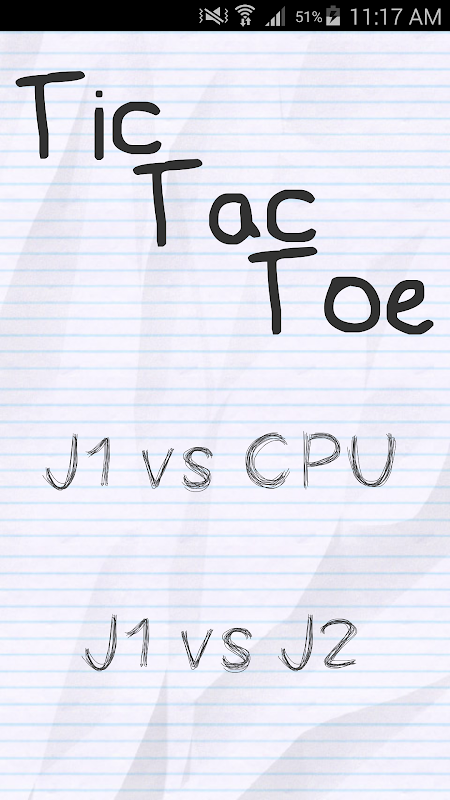 51% 11:17 AM
Tic
Tac
Toe
J1 vs CPU
J1 vs J2